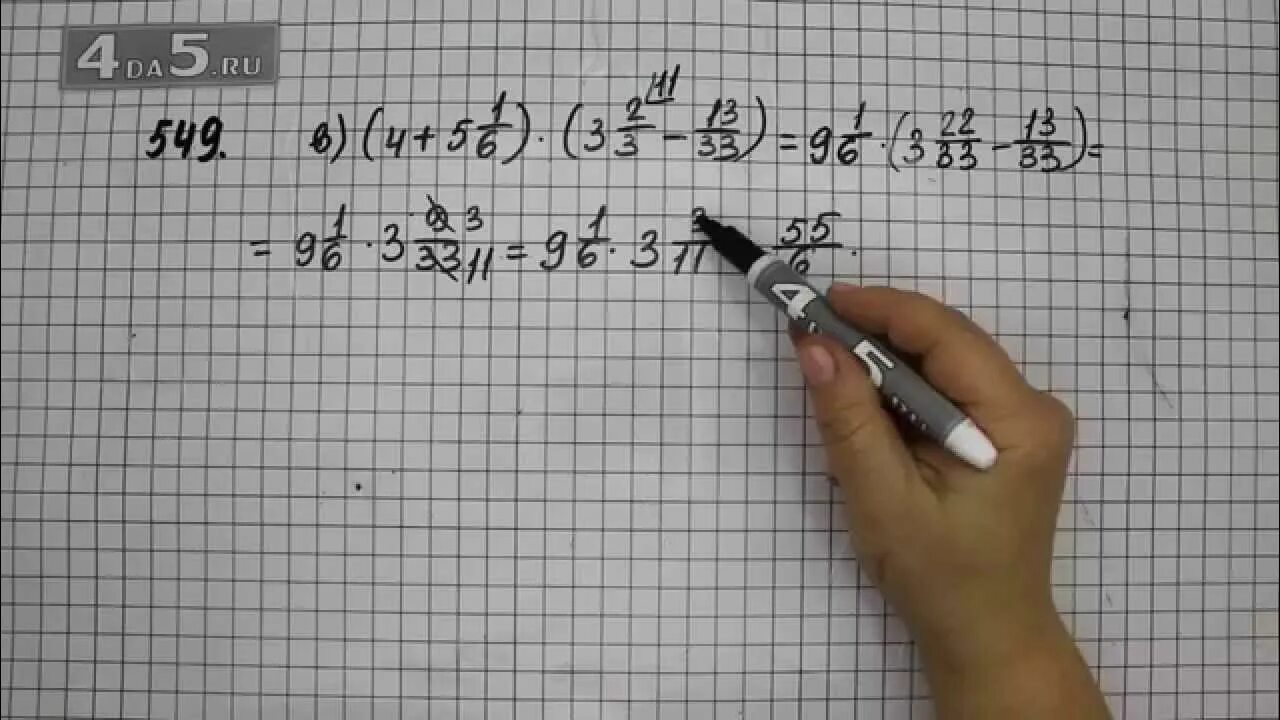 4DA5.RU
549. в) (4 + 5 1/6) · (3 2/3 ⌊11 − 13/33) = 9 1/6 · (3 22/33 − 13/33) =
= 9 1/6 · 3 9/33 3/11 = 9 1/6 · 3 3/11 55/6 ·
4 5